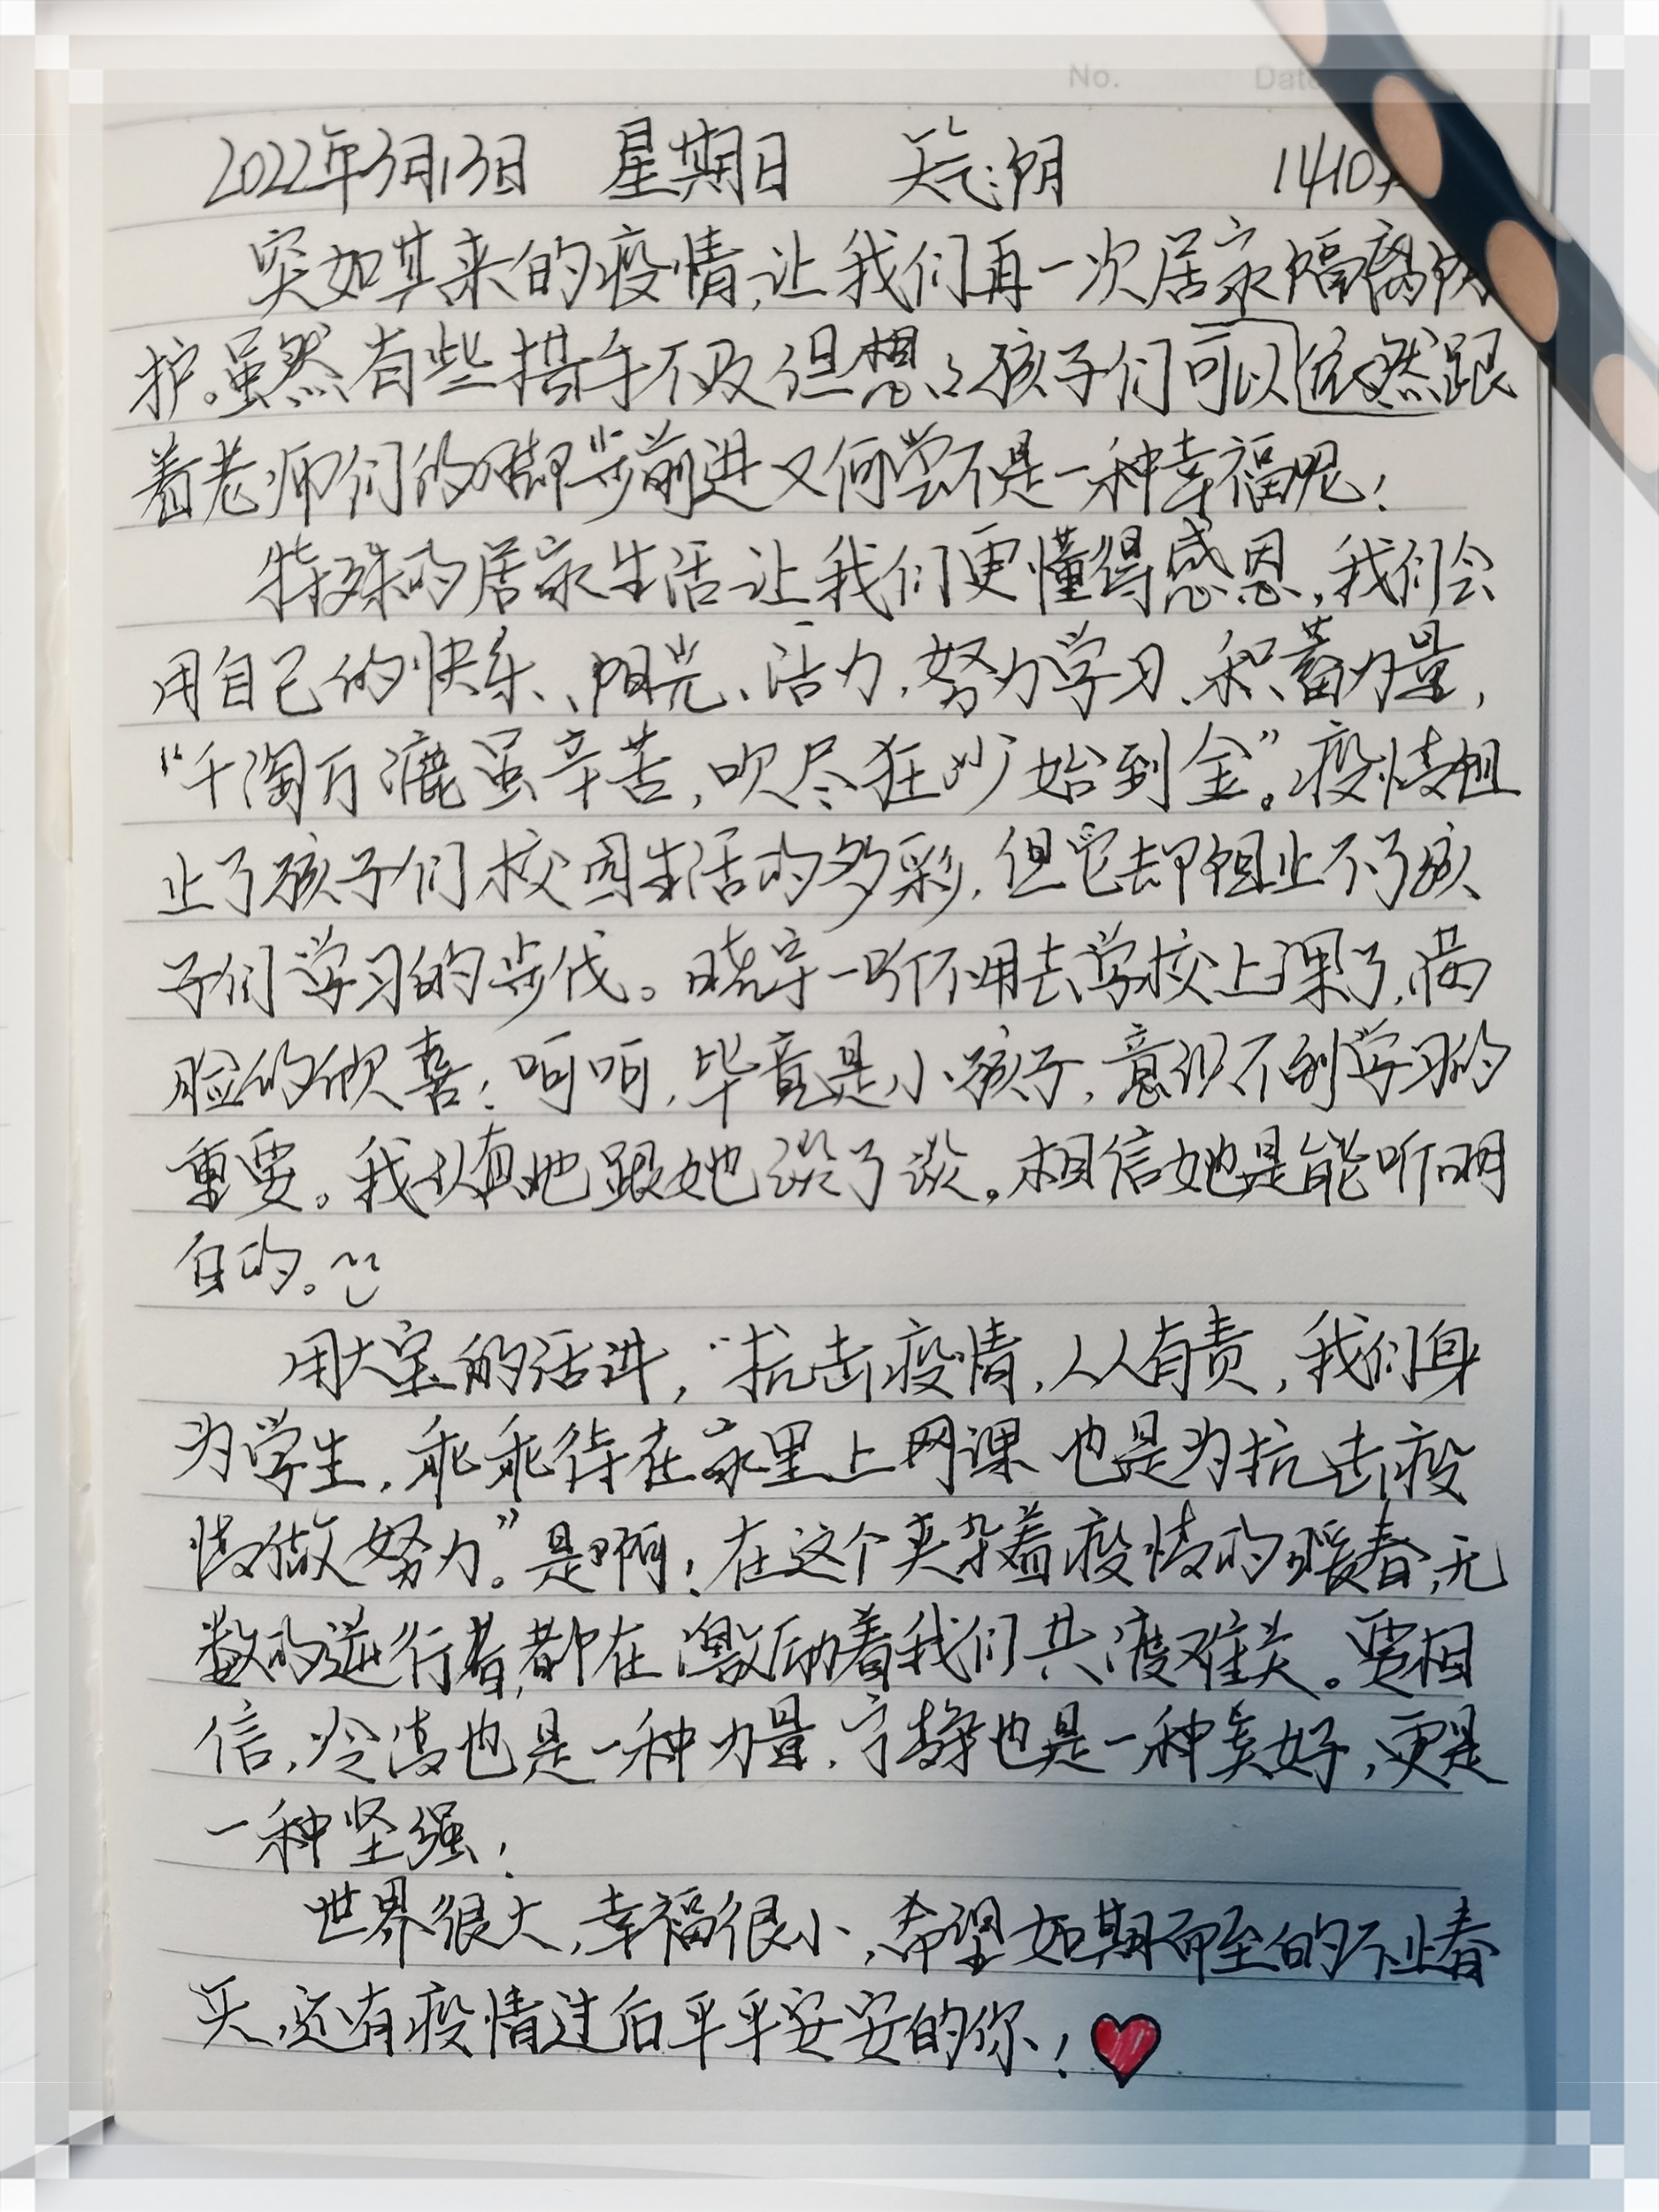 No. Date
2022年3月13日 星期日 天气:阴 1410
突如其来的疫情,让我们再一次居家隔离防
护。虽然有些措手不及但想想孩子们可以依然跟
着老师们的脚步前进又何尝不是一种幸福呢!
特殊的居家生活让我们更懂得感恩,我们会
用自己的快乐、阳光、活力,努力学习、积蓄力量,
“千淘万漉虽辛苦,吹尽狂沙始到金”。疫情阻
止了孩子们校园生活的多彩,但它却阻止不了孩
子们学习的步伐。晓宇一听不用去学校上课了,满
脸的欣喜!呵呵,毕竟是小孩子,意识不到学习的
重要。我认真地跟她谈了谈。相信她是能听明
白的。
用大宝的话讲,“抗击疫情,人人有责,我们身
为学生,乖乖待在家里上网课也是为抗击疫
情做努力”。是啊!在这个夹杂着疫情的暖春,无
数的逆行者,都在激励着我们共渡难关。要相
信,冷清也是一种力量,宁静也是一种美好,更是
一种坚强!
世界很大,幸福很小,希望如期而至的不止春
天,还有疫情过后平平安安的你!